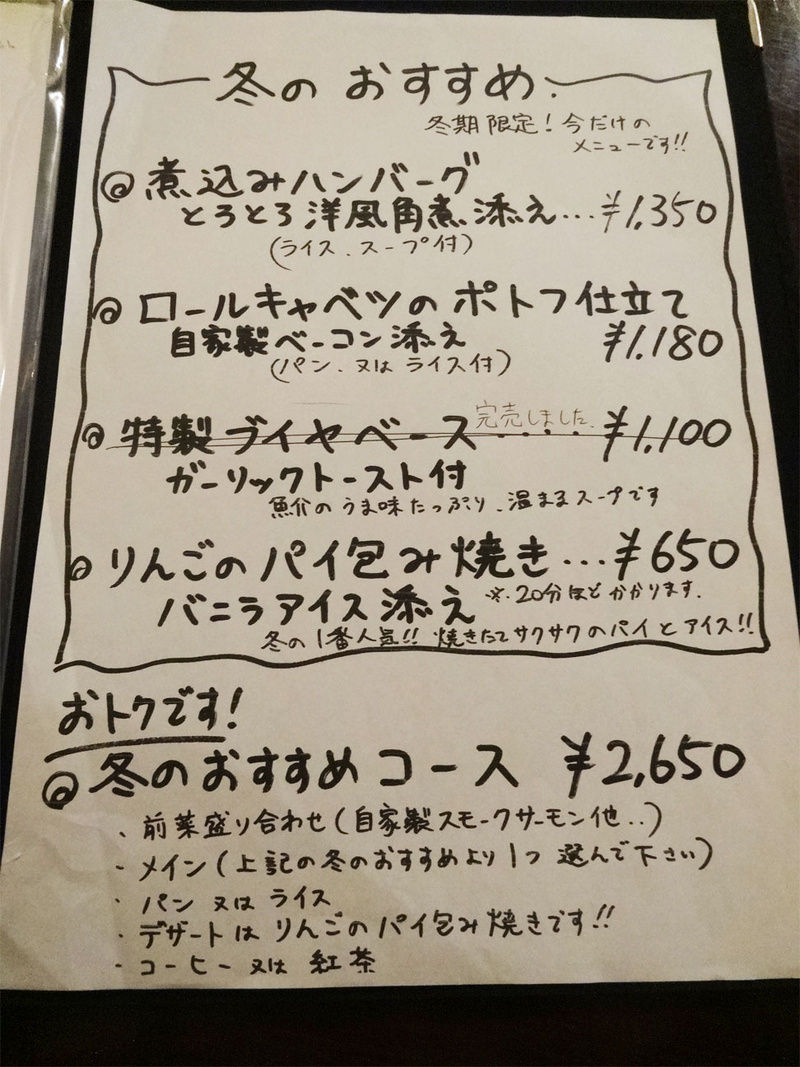 冬の おすすめ.
冬期限定！今だけの
メニューです!!
◎ 煮込みハンバーグ
とろとろ洋風角煮添え…¥1,350
(ライス、スープ付)
◎ ロールキャベツの ポトフ仕立て
自家製ベーコン添え ¥1,180
(パン、又は ライス付)
完売しました.
◎ 特製ブイヤベース・・・・¥1,100
ガーリックトースト付
魚介のうま味たっぷり、温まるスープです
◎ りんごの パイ包み焼き…¥650
バニラアイス添え ※.20分ほどかかります.
冬の1番人気!! 焼きたてサクサクのパイとアイス!!
おトクです!
◎ 冬のおすすめコース ¥2,650
、前菜盛り合わせ(自家製スモークサーモン他..)
・メイン(上記の冬のおすすめより1つ 選んで下さい)
・パン 又は ライス
・デザートは りんごのパイ包み焼きです!!
・コーヒー 又は 紅茶